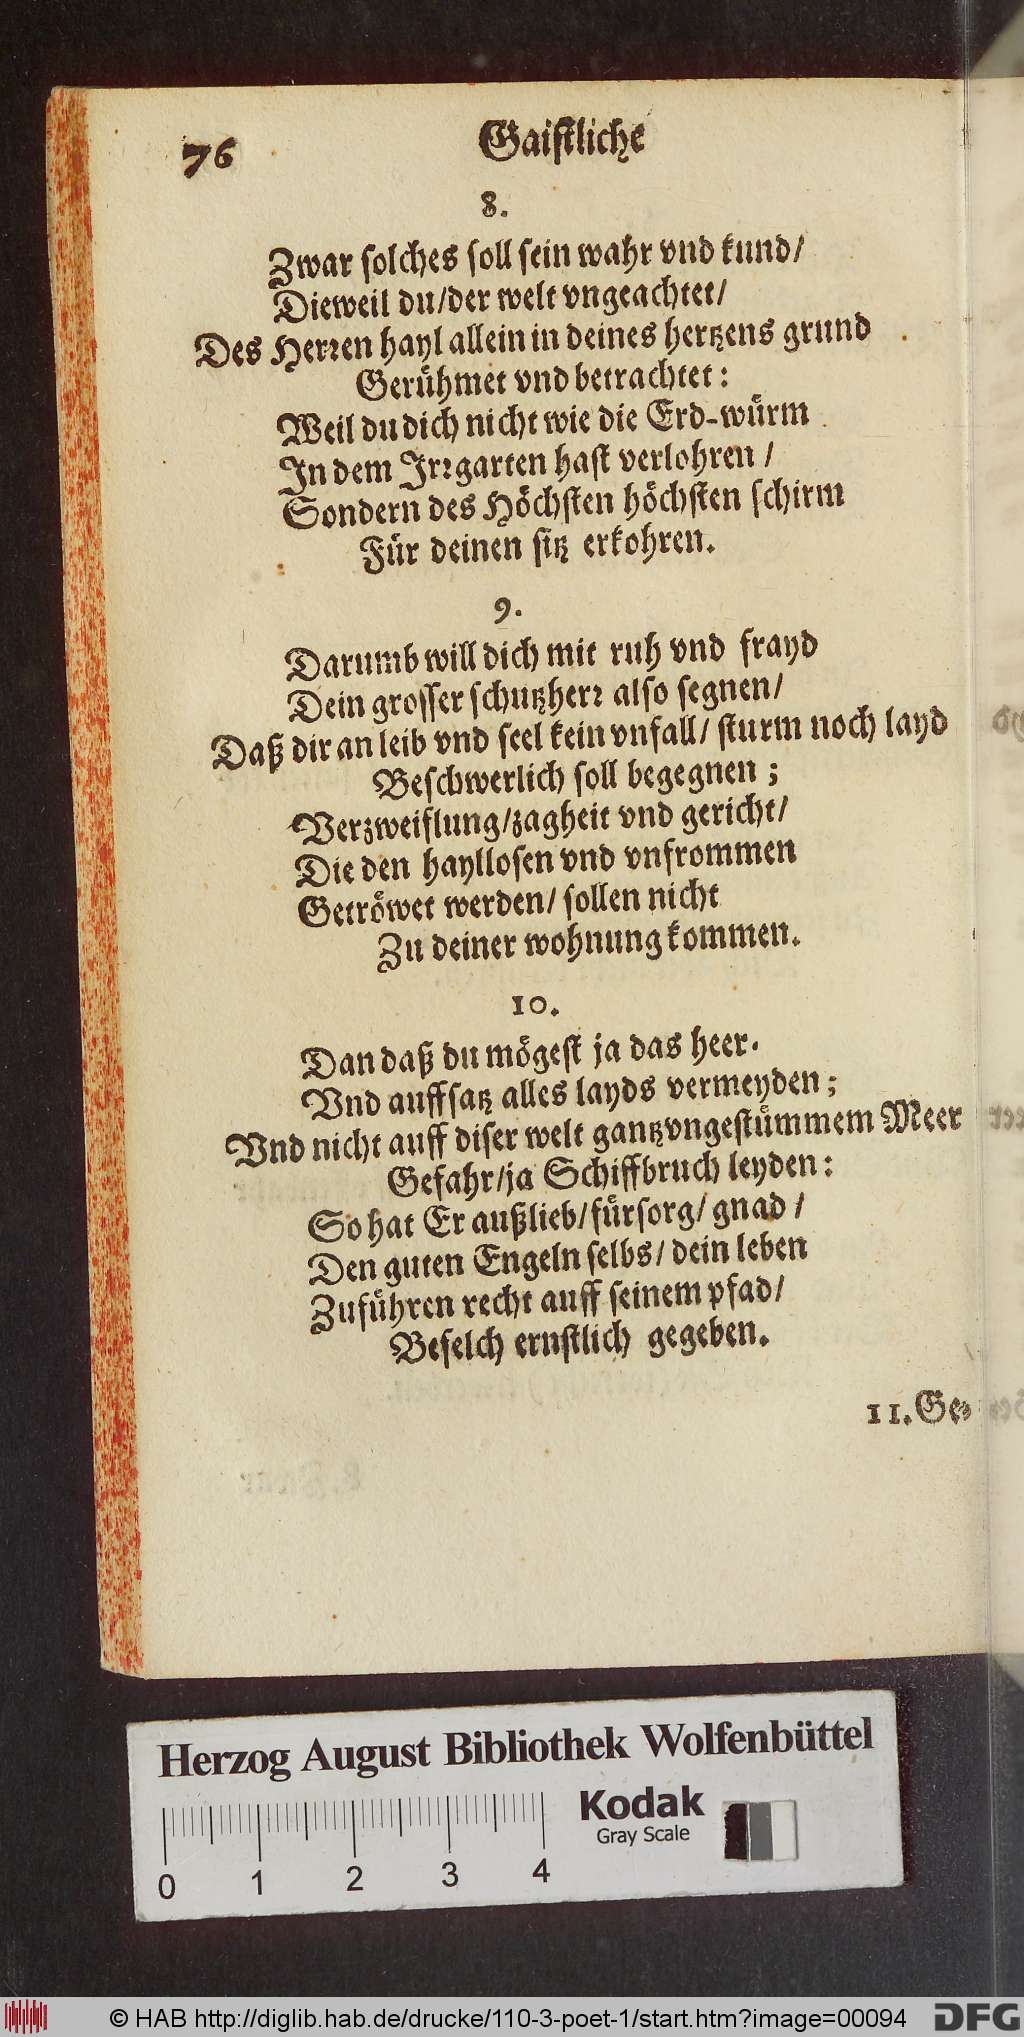 76 Gaistliche
8.
Zwar solches soll sein wahr vnd kund/
Dieweil du/der welt vngeachtet/
Des Herren hayl allein in deines hertzens grund
Gerühmet vnd betrachtet:
Weil du dich nicht wie die Erd-würm
In dem Irrgarten hast verlohren /
Sondern des Höchsten höchsten schirm
Für deinen sitz erkohren.
9.
Darumb will dich mit ruh vnd frayd
Dein grosser schutzherr also segnen/
Daß dir an leib vnd seel kein vnfall/ sturm noch layd
Beschwerlich soll begegnen ;
Verzweiflung/zagheit vnd gericht/
Die den hayllosen vnd vnfrommen
Getröwet werden/ sollen nicht
Zu deiner wohnung kommen.
10.
Dan daß du mögest ja das heer.
Vnd auffsatz alles layds vermeyden ;
Vnd nicht auff diser welt gantz vngestümmem Meer
Gefahr/ja Schiffbruch leyden:
So hat Er auß lieb/fürsorg/ gnad /
Den guten Engeln selbs/ dein leben
Zuführen recht auff seinem pfad/
Befelch ernstlich gegeben.
11.Ge-
Herzog August Bibliothek Wolfenbüttel
Kodak
Gray Scale
0 1 2 3 4
© HAB http://diglib.hab.de/drucke/110-3-poet-1/start.htm?image=00094
DFG